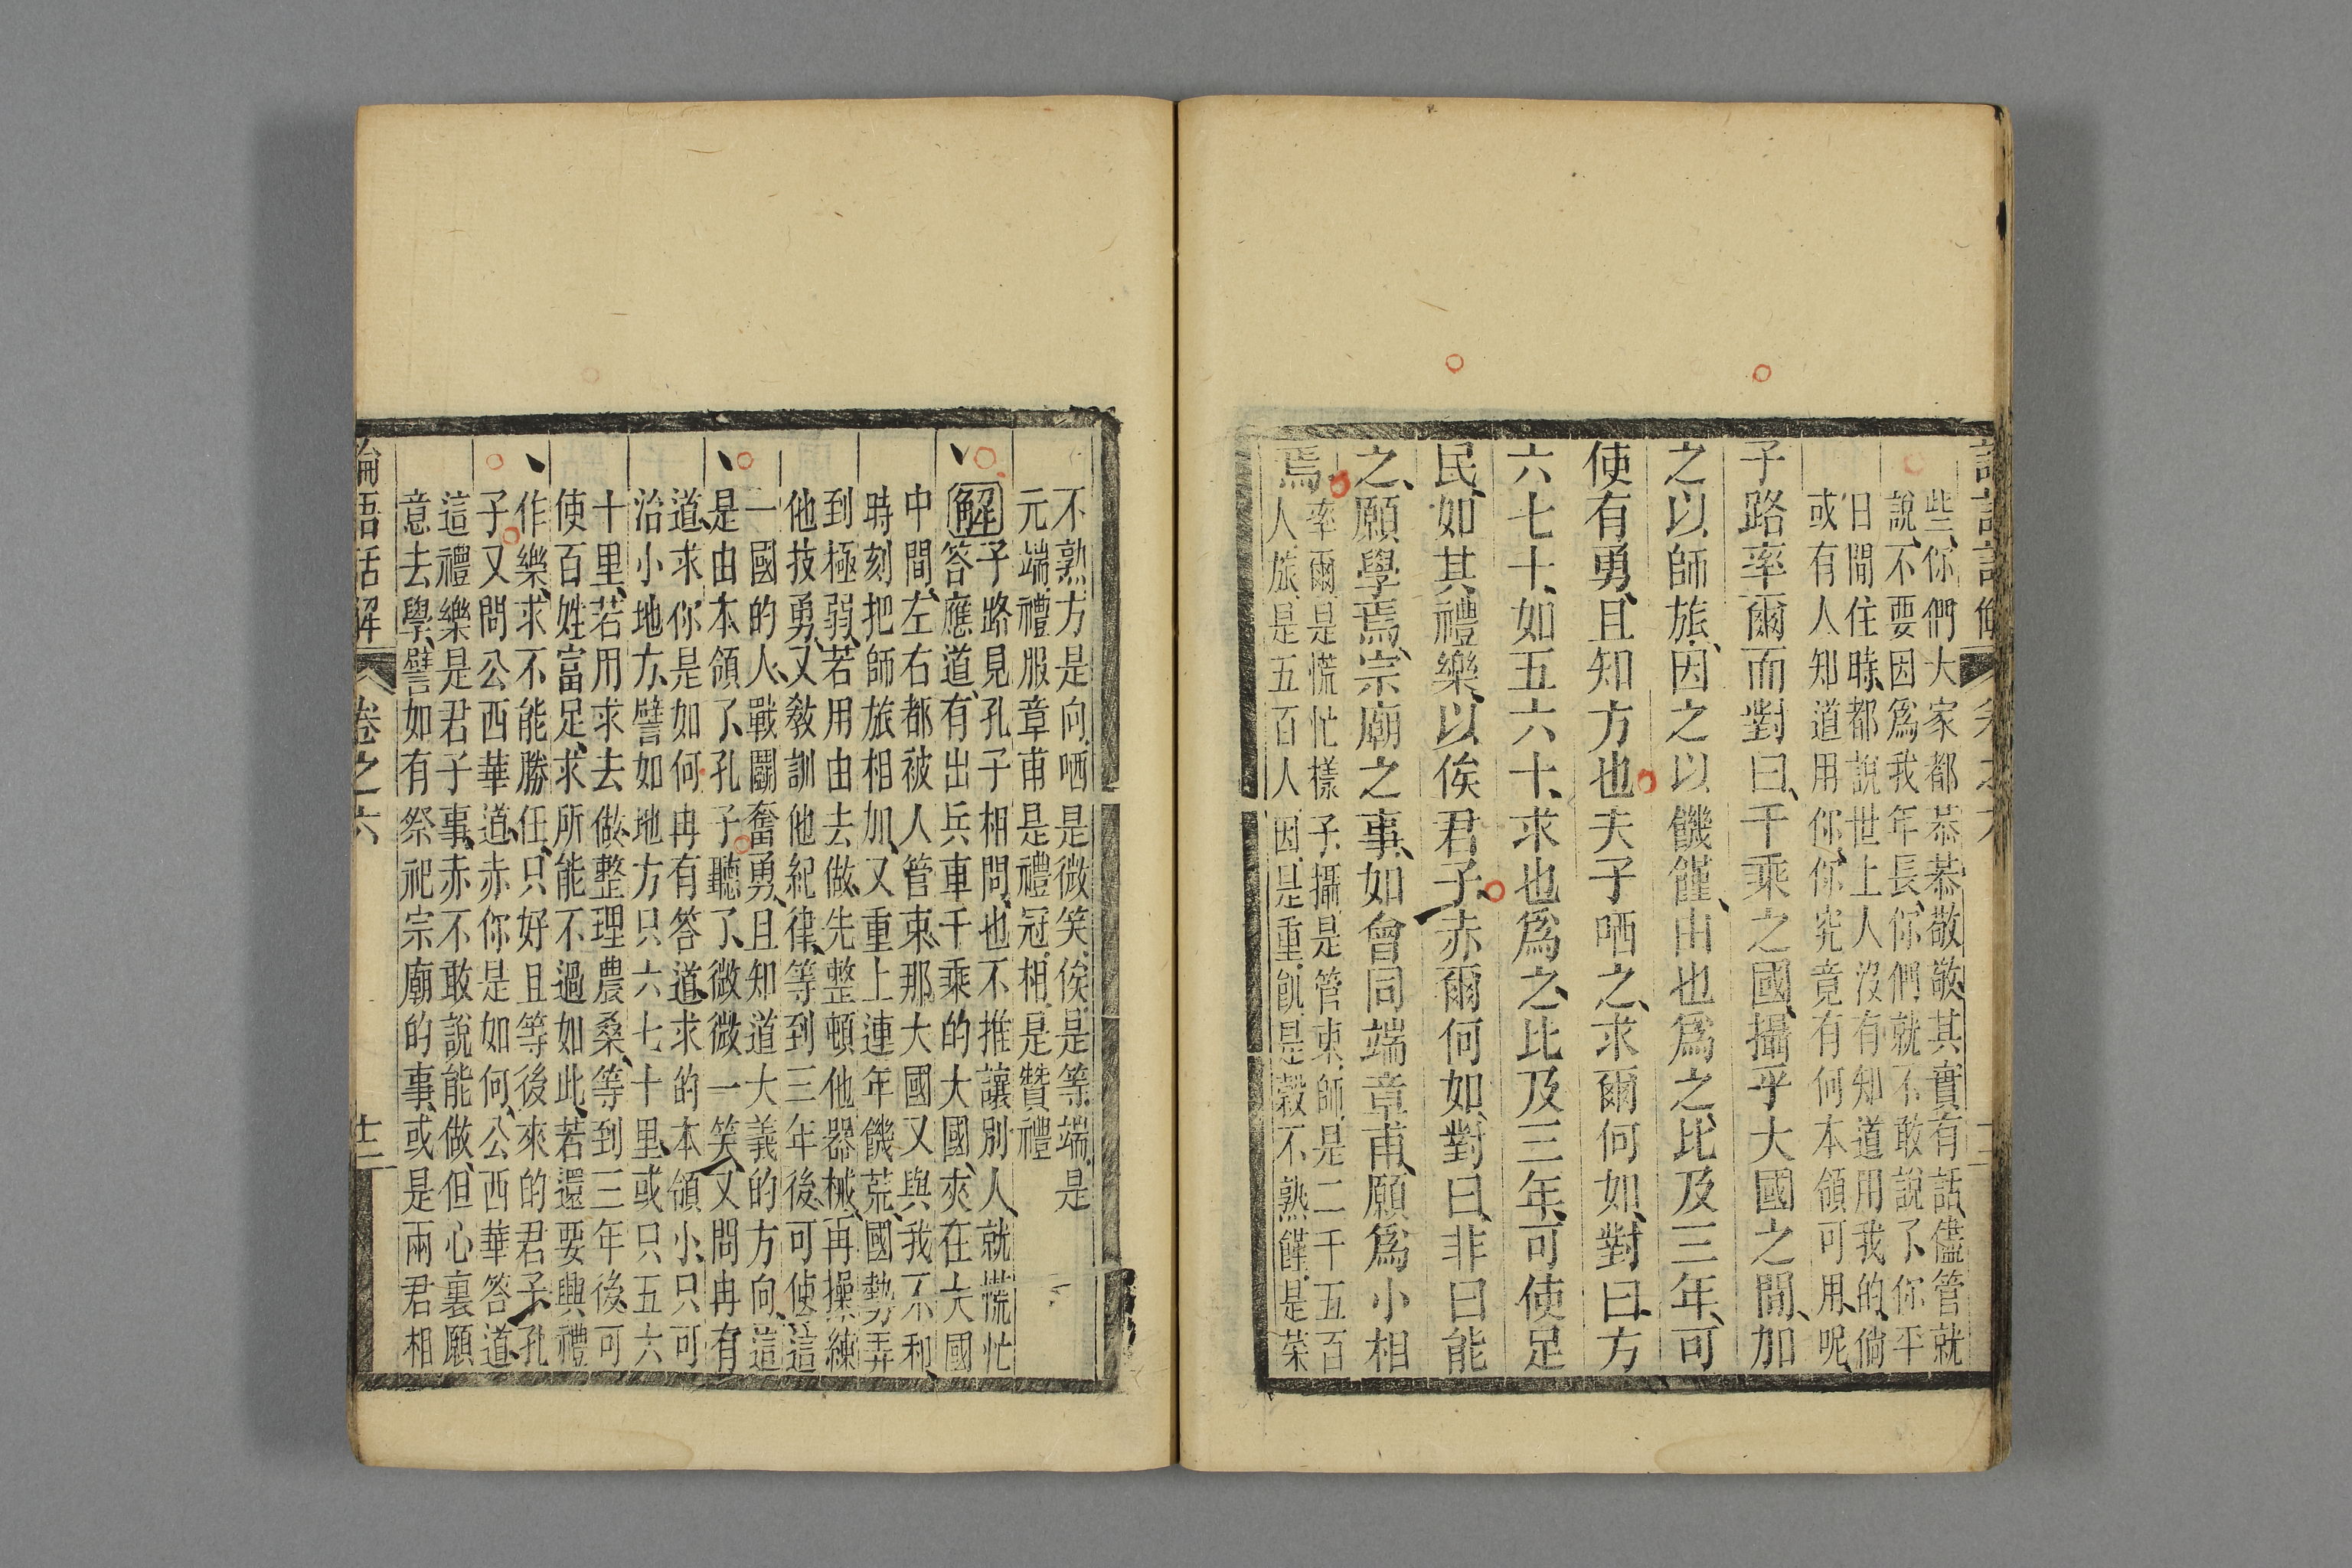 些、你們大家都恭恭敬敬、其實有話、儘管就
說、不要因爲我年長、你們就不敢說了、你平
日間住時、都說世上人沒有知道用我的、倘
或有人知道用你、你究竟有何本領可用、呢、
子路率爾而對曰、千乘之國、攝乎大國之間、加
之以師旅、因之以饑饉、由也爲之、比及三年、可
使有勇、且知方也、夫子哂之、求爾何如、對曰、方
六七十、如五六十、求也爲之、比及三年、可使足
民、如其禮樂、以俟君子、赤爾何如、對曰、非曰能
之、願學焉、宗廟之事、如會同、端章甫、願爲小相
焉、率爾、是慌忙樣子、攝、是管束、師、是二千五百
人、旅、是五百人、因、是重、飢、是穀不熟、饉、是菜
不熟、方、是向、哂、是微笑、俟、是等、端、是
元端、禮服、章甫、是禮冠、相、是贊禮
解 子路見孔子相問、也不推讓別人、就慌忙
答應道、有出兵車千乘的大國、夾在大國
中間、左右都被人管束、那大國又與我不和、
時刻把師旅相加、又重上連年饑荒、國勢弄
到極弱、若用由去做、先整頓他器械、再操練
他技勇、又敎訓他紀律、等到三年後、可使這
一國的人、戰鬬奮勇、且知道大義的方向、這
是由本領了、孔子聽了、微微一笑、又問冉有
道、求你是如何、冉有答道、求的本領小、只可
治小地方、譬如地方只六七十里、或只五六
十里、若用求去做、整理農桑、等到三年後、可
使百姓富足、求所能不過如此、若還要興禮
作樂、求不能勝任、只好且等後來的君子、孔
子又問公西華道、赤你是如何、公西華答道、
這禮樂是君子事、赤不敢說能做、但心裏願
意去學、譬如有祭祀宗廟的事、或是兩君相
論語話解 卷之六 十二